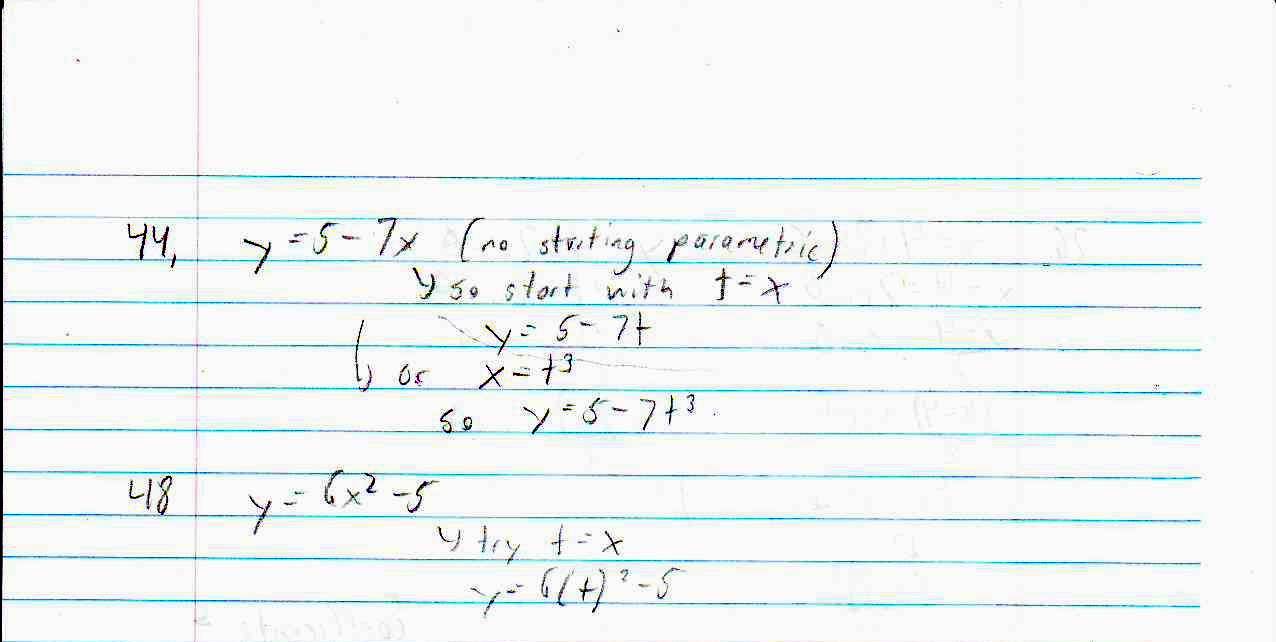 44, y = 5 - 7x (no starting parametric)
↳ so start with t = x
y = 5 - 7t
↳ or x = t³
so y = 5 - 7t³.
48 y = 6x² - 5
↳ try t = x
y = 6(t)² - 5